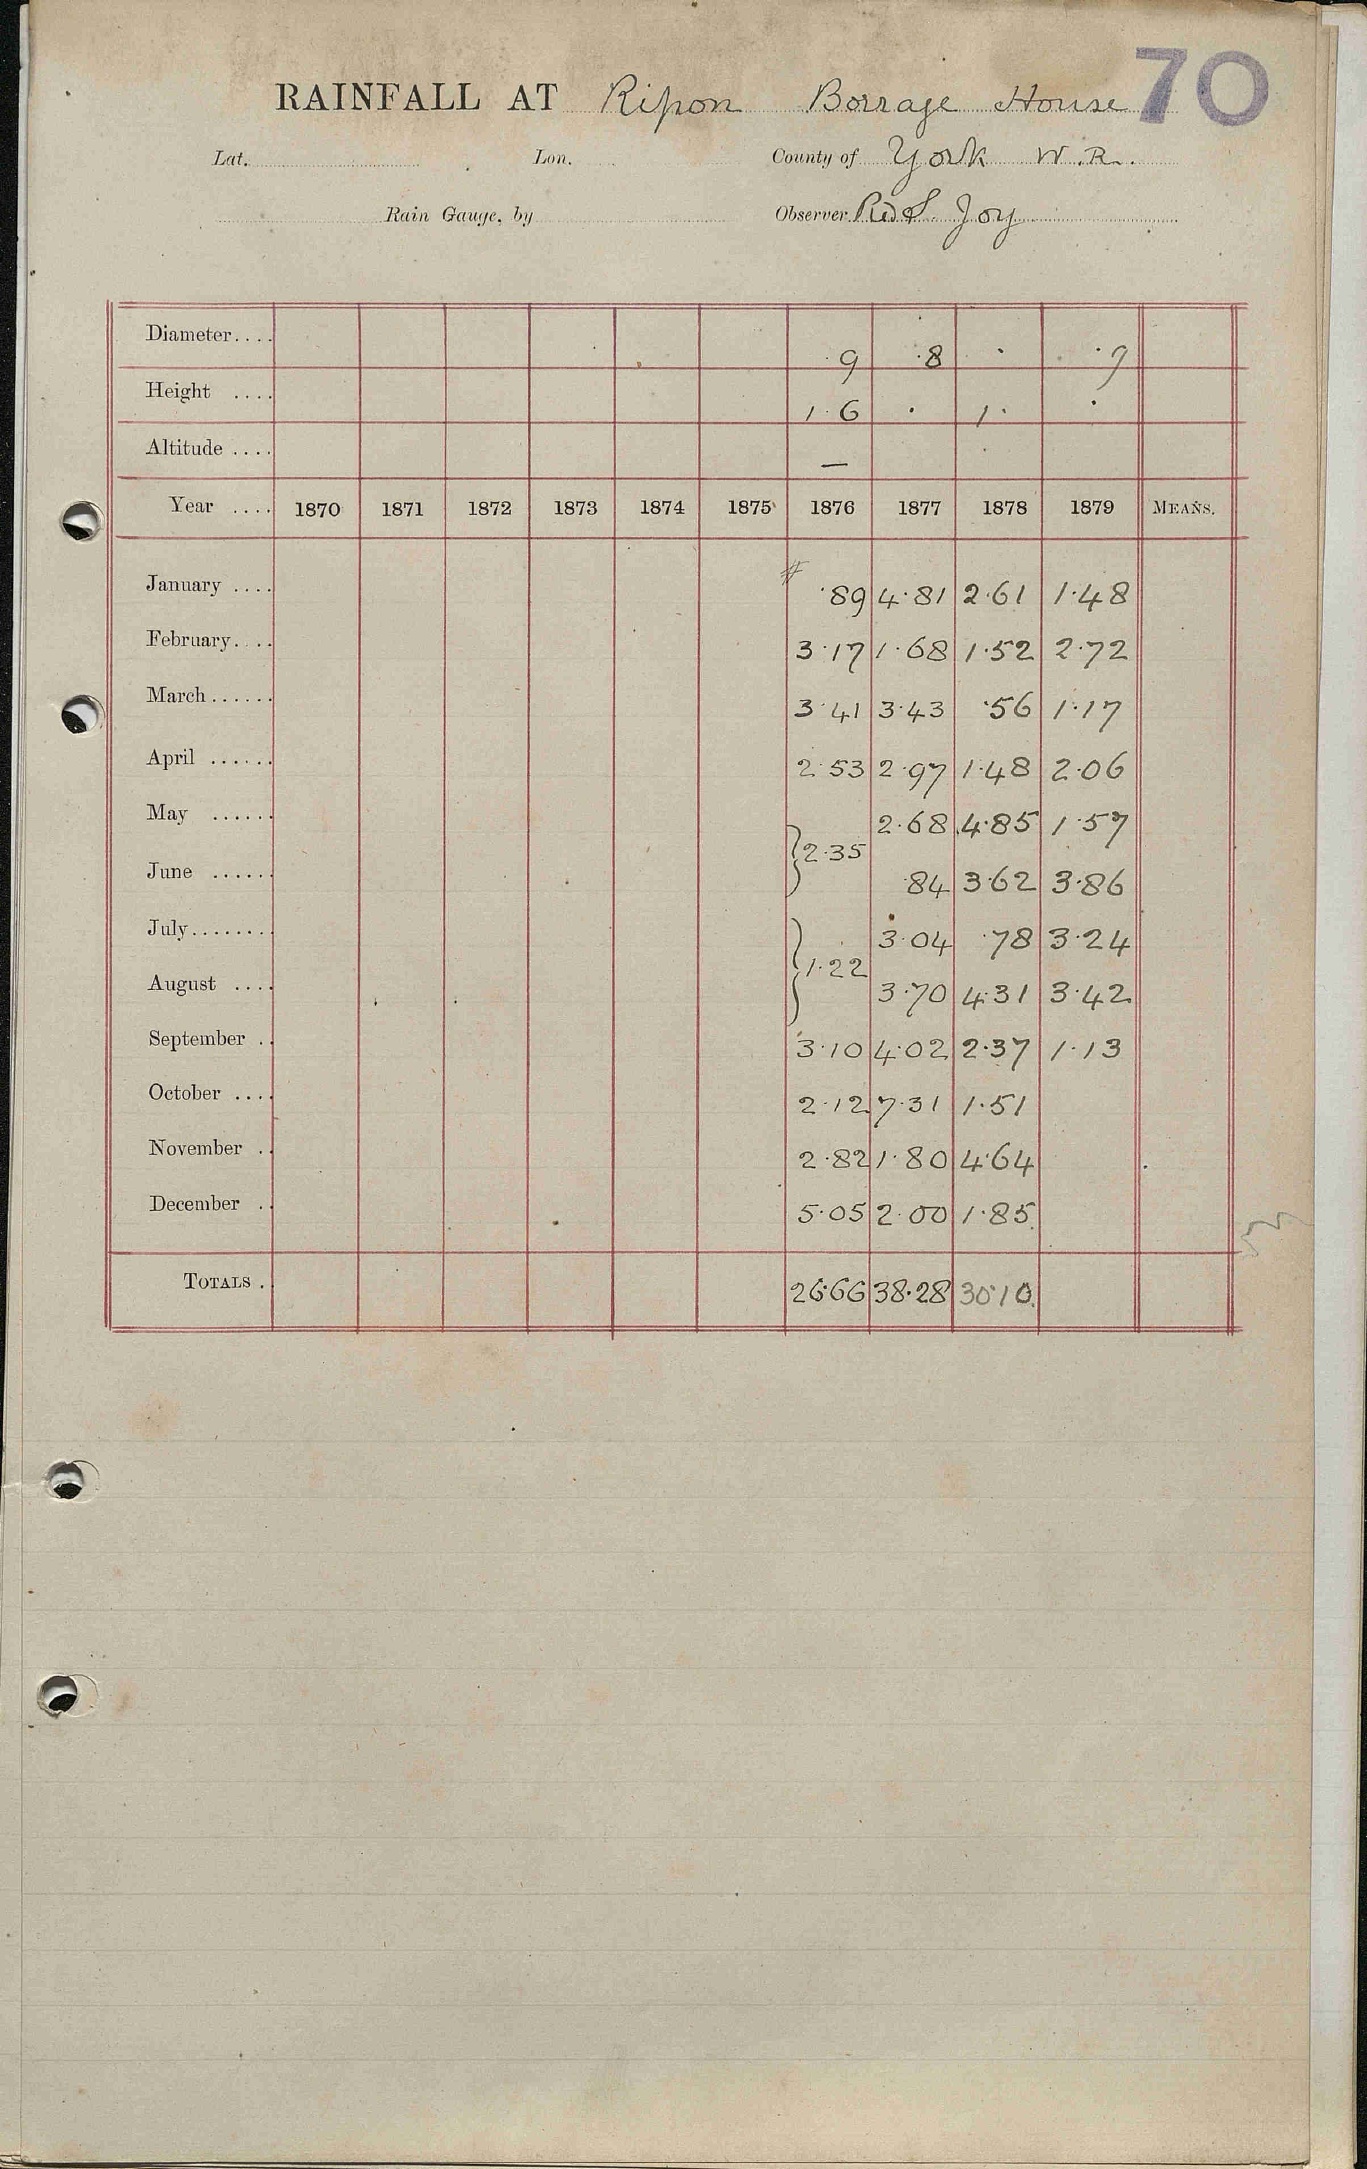 70
RAINFALL AT Ripon Borrage House
Lat. Lon. County of York W.R.
Rain Gauge, by Observer Revd S. Joy
Diameter.... 9 8 · 9
Height .... 1·6 · 1· ·
Altitude .... —
Year .... 1870 1871 1872 1873 1874 1875 1876 1877 1878 1879 MEANS.
January .... # ·89 4·81 2·61 1·48
February.... 3·17 1·68 1·52 2·72
March...... 3·41 3·43 ·56 1·17
April ...... 2·53 2·97 1·48 2·06
May ...... 2·68 4·85 1·57
} 2·35
June ...... ·84 3·62 3·86
July........ 3·04 ·78 3·24
} 1·22
August .... 3·70 4·31 3·42
September .. 3·10 4·02 2·37 1·13
October .... 2·12 7·31 1·51
November .. 2·82 1·80 4·64
December .. 5·05 2·00 1·85
TOTALS .. 26·66 38·28 30·10